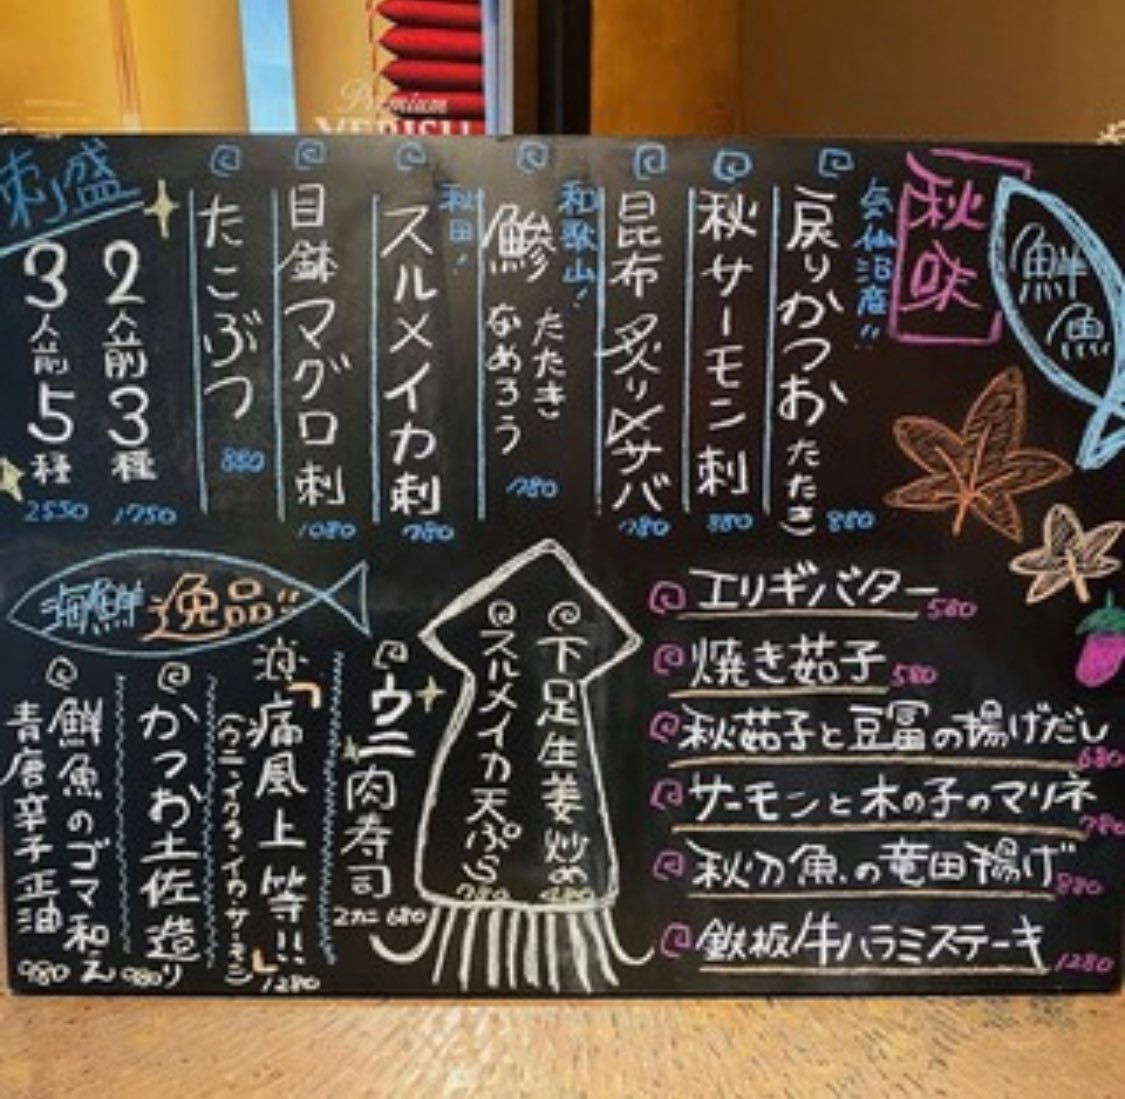 Premium
YEBISU
鮮魚
秋味
気仙沼産!!
戻りかつおたたき 880
秋サーモン刺 880
昆布炙り〆サバ 780
和歌山!
鯵 たたき
なめろう
780
秋田!
スルメイカ刺 780
目鉢マグロ刺 1080
たこぶつ 880
刺盛
2人前3種 1750
3人前5種 2550
海鮮逸品!!
ウニ肉寿司
2カン 680
「痛風上等!!」
(ウニ・イクラ・イカ・サーモン)
1280
かつお土佐造り 980
鮮魚のゴマ和え
青唐辛子正油
980
下足生姜炒め 480
スルメイカ天ぷら 780
エリギバター 580
焼き茄子 580
秋茄子と豆冨の揚げだし 680
サーモンと木の子のマリネ 780
秋刀魚の竜田揚げ 880
鉄板牛ハラミステーキ 1280